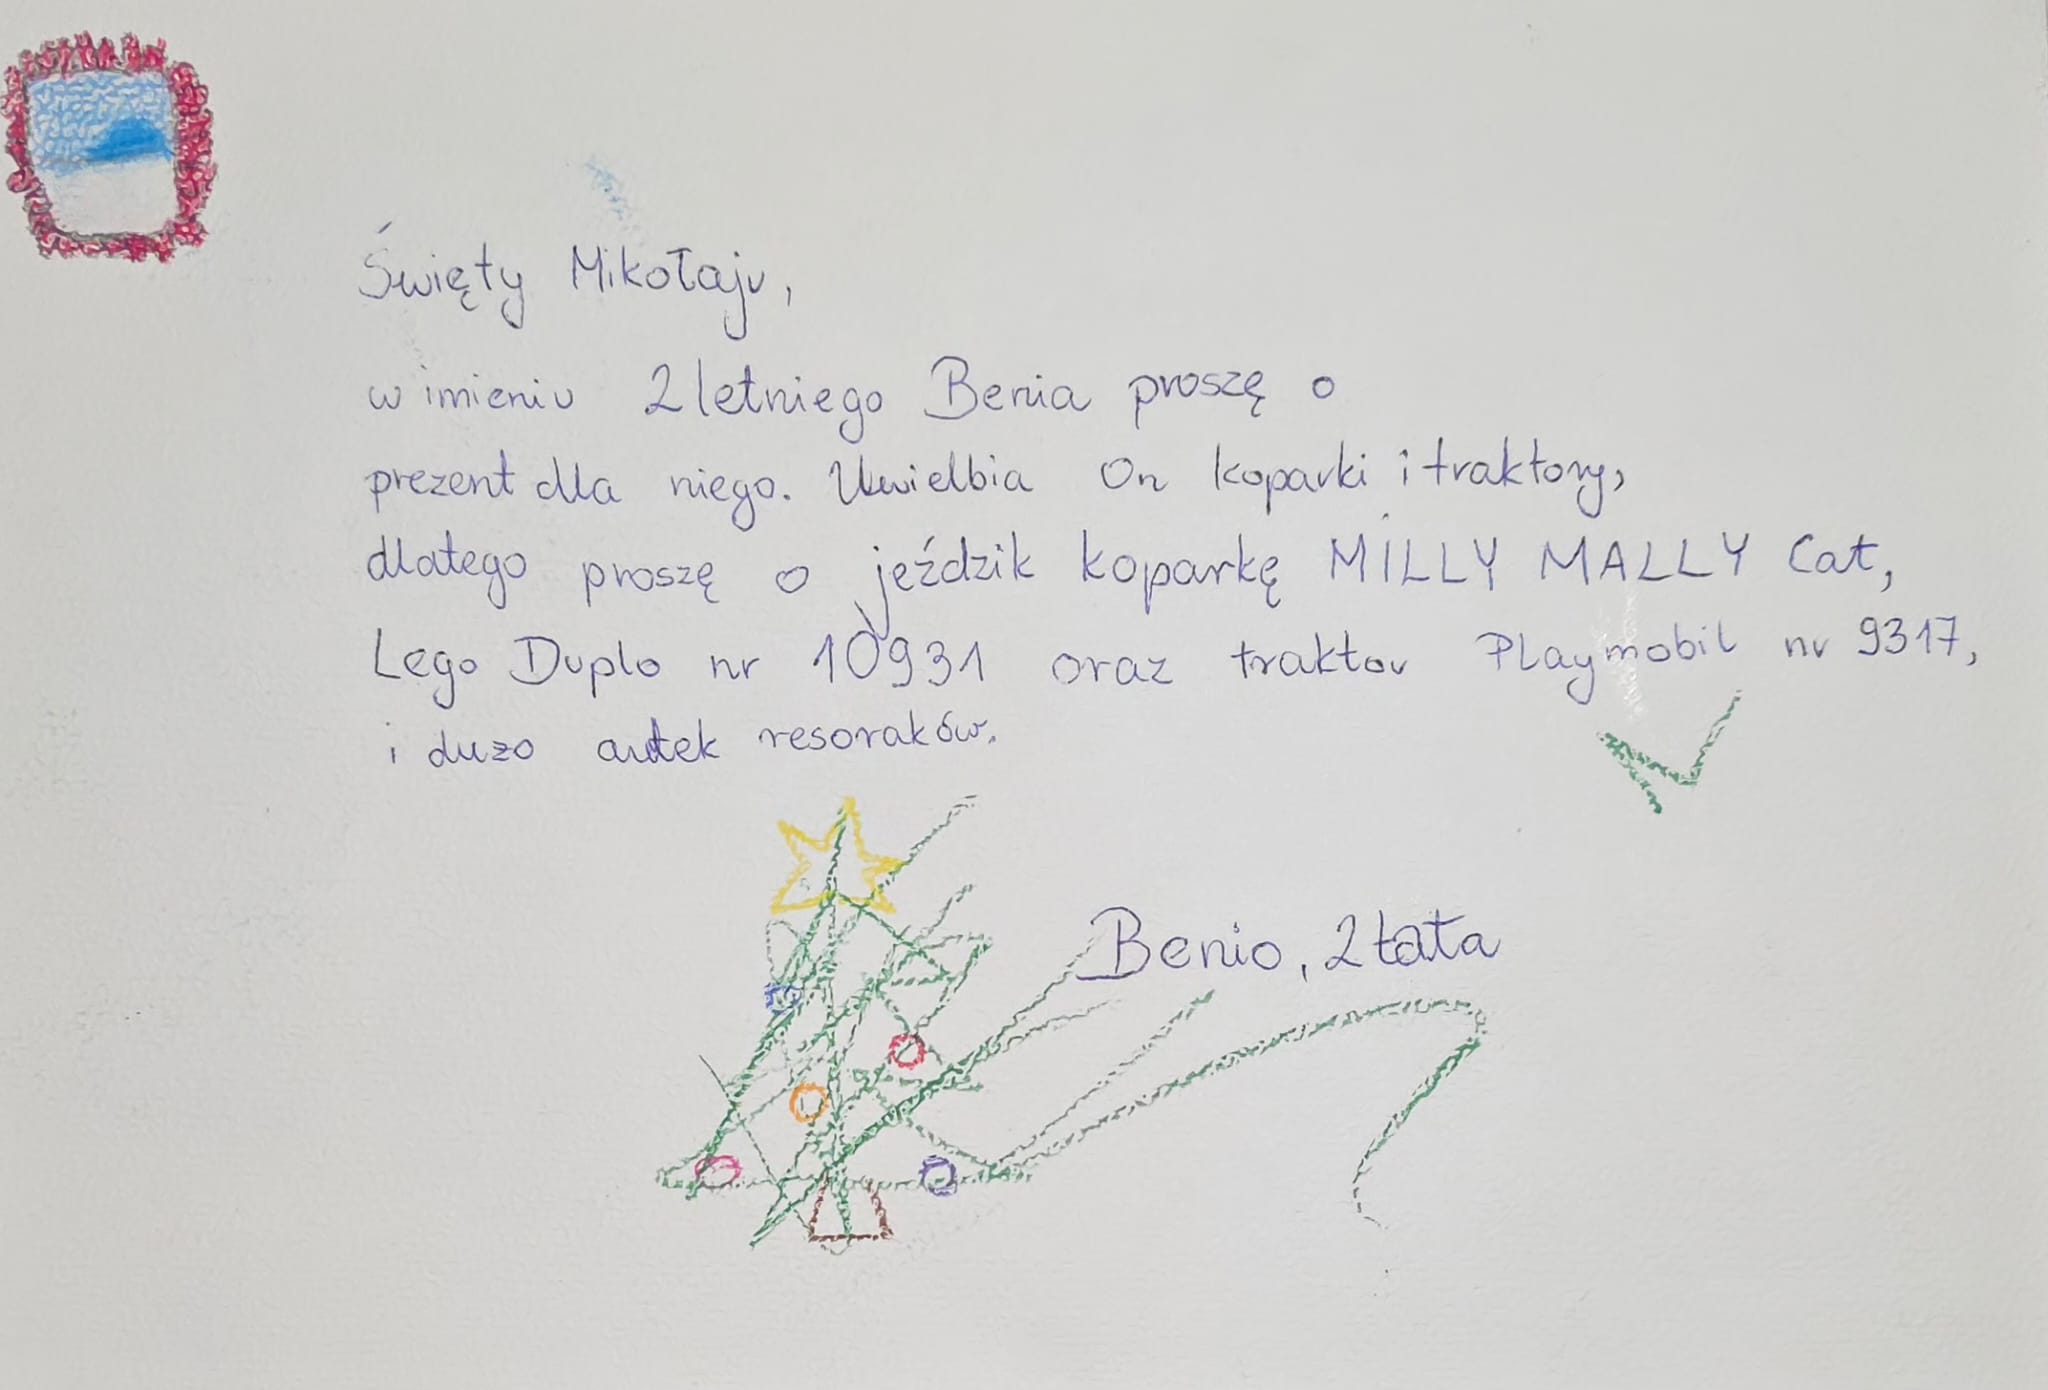 Święty Mikołaju,
w imieniu 2 letniego Benia proszę o
prezent dla niego. Uwielbia On koparki i traktory,
dlatego proszę o jeździk koparkę MILLY MALLY Cat,
Lego Duplo nr 10931 oraz traktor Playmobil nr 9317,
i dużo autek resoraków.
Benio, 2 lata